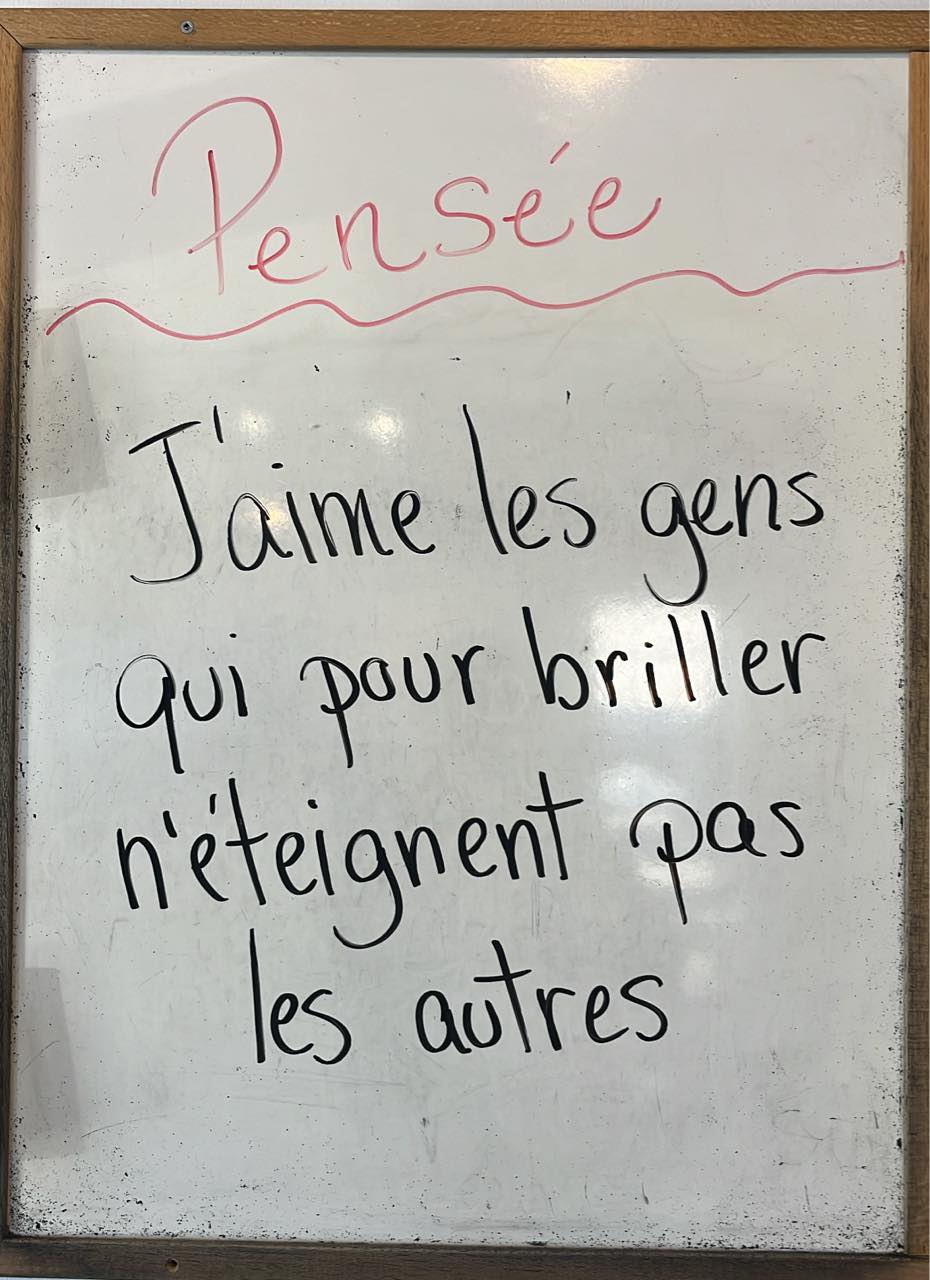 Pensée
J'aime les gens
qui pour briller
n'éteignent pas
les autres